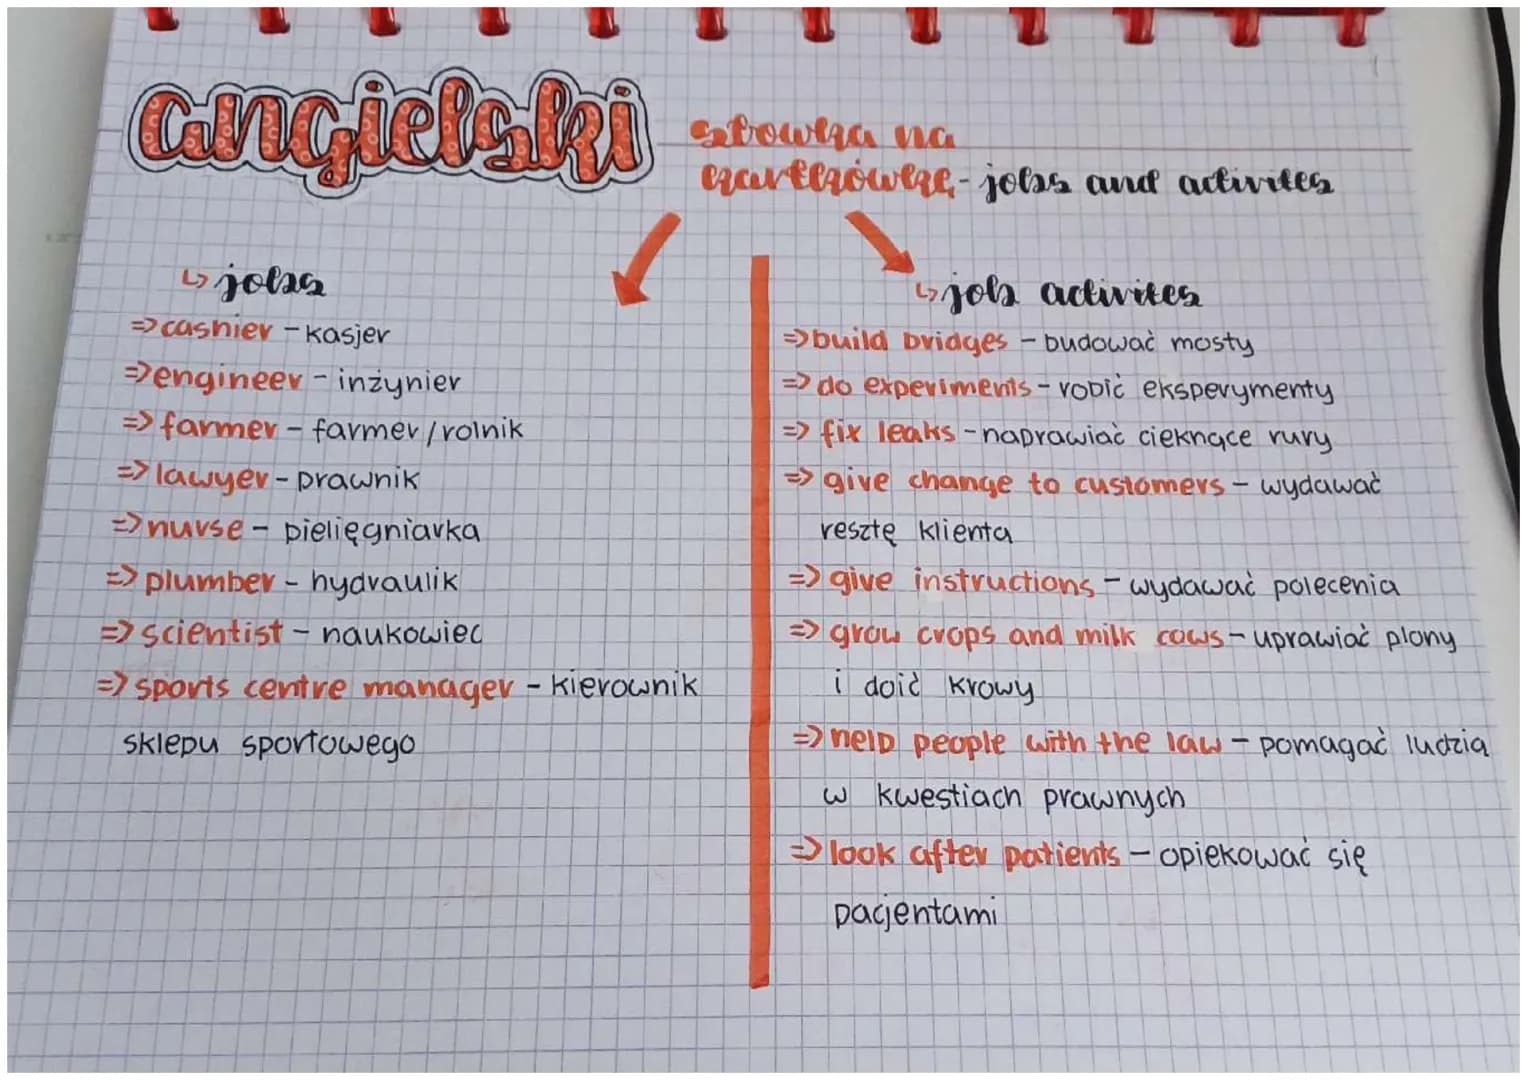 angielski
słówka na
kartkówkę - jobs and activites
↳ jobs
=> cashier - kasjer
=> engineer - inżynier
=> farmer - farmer/rolnik
=> lawyer - prawnik
=> nurse - pielięgniarka
=> plumber - hydraulik
=> scientist - naukowiec
=> sports centre manager - kierownik
sklepu sportowego
↳ job activites
=> build bridges - budować mosty
=> do experiments - robić eksperymenty
=> fix leaks - naprawiać cieknące rury
=> give change to customers - wydawać
resztę klienta
=> give instructions - wydawać polecenia
=> grow crops and milk cows - uprawiać plony
i doić krowy
=> help people with the law - pomagać ludzią
w kwestiach prawnych
=> look after patients - opiekować się
pacjentami